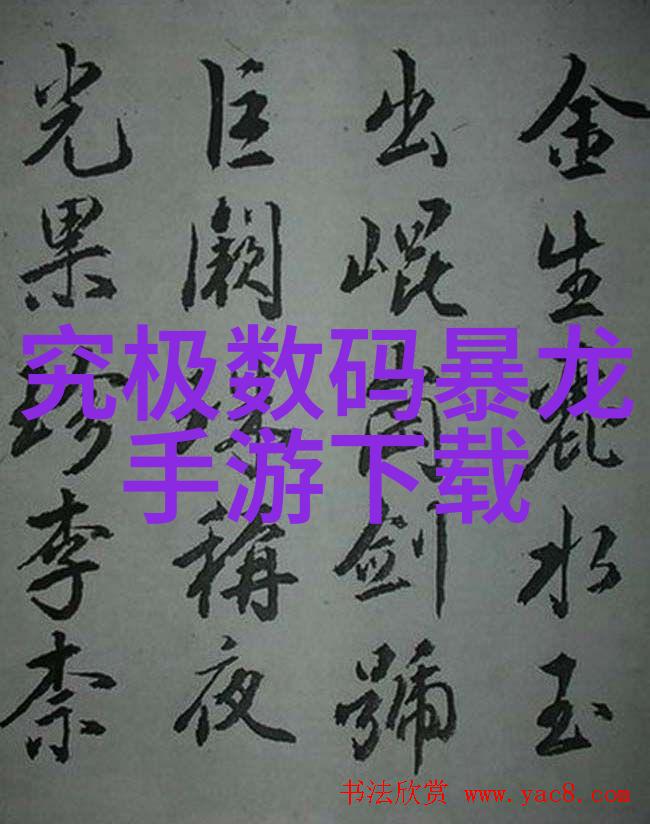 金生麗水玉
出崐岡劍號
巨闕珠稱夜
光果珍李柰
究极数码暴龙
手游下载
书法欣赏 www.yac8.com